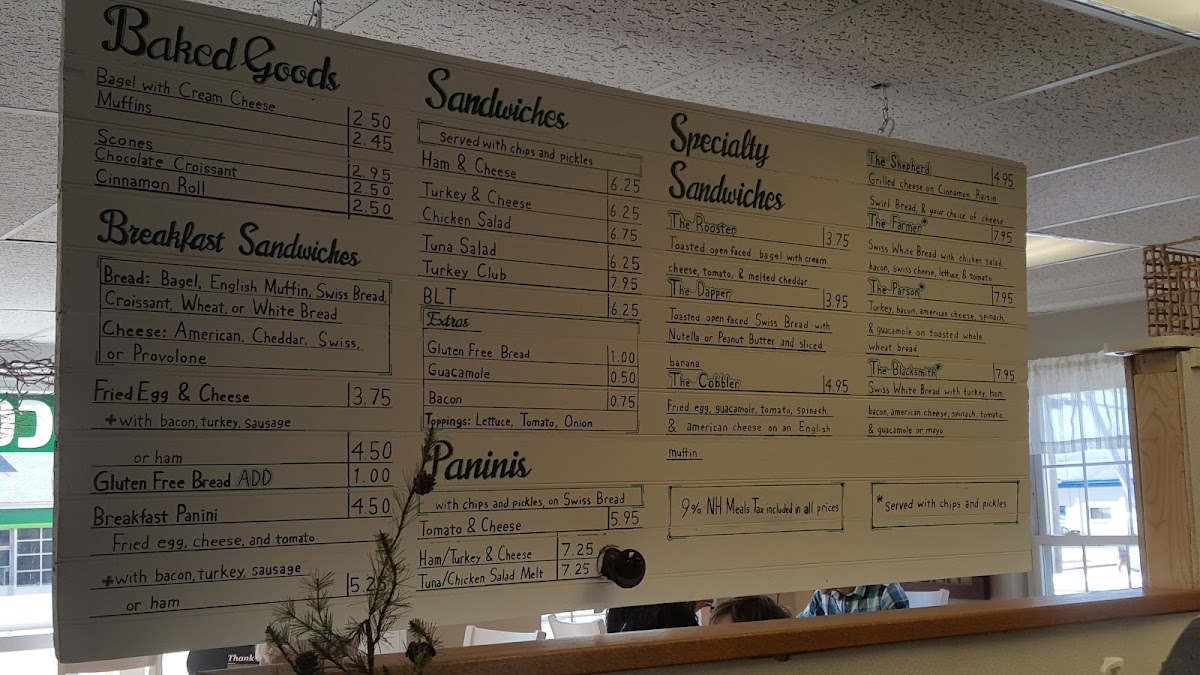 Baked Goods
Bagel with Cream Cheese 2.50
Muffins 2.45
Scones 2.95
Chocolate Croissant 2.50
Cinnamon Roll 2.50
Breakfast Sandwiches
Bread: Bagel, English Muffin, Swiss Bread,
Croissant, Wheat, or White Bread
Cheese: American, Cheddar, Swiss,
or Provolone
Fried Egg & Cheese 3.75
+with bacon, turkey, sausage
or ham 4.50
Gluten Free Bread ADD 1.00
Breakfast Panini 4.50
Fried egg, cheese, and tomato
+with bacon, turkey, sausage
or ham 5.2
Sandwiches
served with chips and pickles
Ham & Cheese 6.25
Turkey & Cheese 6.25
Chicken Salad 6.75
Tuna Salad 6.25
Turkey Club 7.95
BLT 6.25
Extras
Gluten Free Bread 1.00
Guacamole 0.50
Bacon 0.75
Toppings: Lettuce, Tomato, Onion
Paninis
with chips and pickles, on Swiss Bread
Tomato & Cheese 5.95
Ham/Turkey & Cheese 7.25
Tuna/Chicken Salad Melt 7.25
Specialty
Sandwiches
The Rooster 3.75
Toasted open faced bagel with cream
cheese, tomato, & melted cheddar
The Dapper 3.95
Toasted open faced Swiss Bread with
Nutella or Peanut Butter and sliced
banana
The Cobbler 4.95
Fried egg, guacamole, tomato, spinach,
& american cheese on an English
muffin
9% NH Meals Tax included in all prices
The Shepherd 4.95
Grilled cheese on Cinnamon Raisin
Swirl Bread, & your choice of cheese
The Farmer* 7.95
Swiss White Bread with chicken salad,
bacon, swiss cheese, lettuce, & tomato
The Parson* 7.95
Turkey, bacon, american cheese, spinach,
& guacamole on toasted whole
wheat bread
The Blacksmith* 7.95
Swiss White Bread with turkey, ham,
bacon, american cheese, spinach, tomato,
& guacamole or mayo
*Served with chips and pickles
Thank